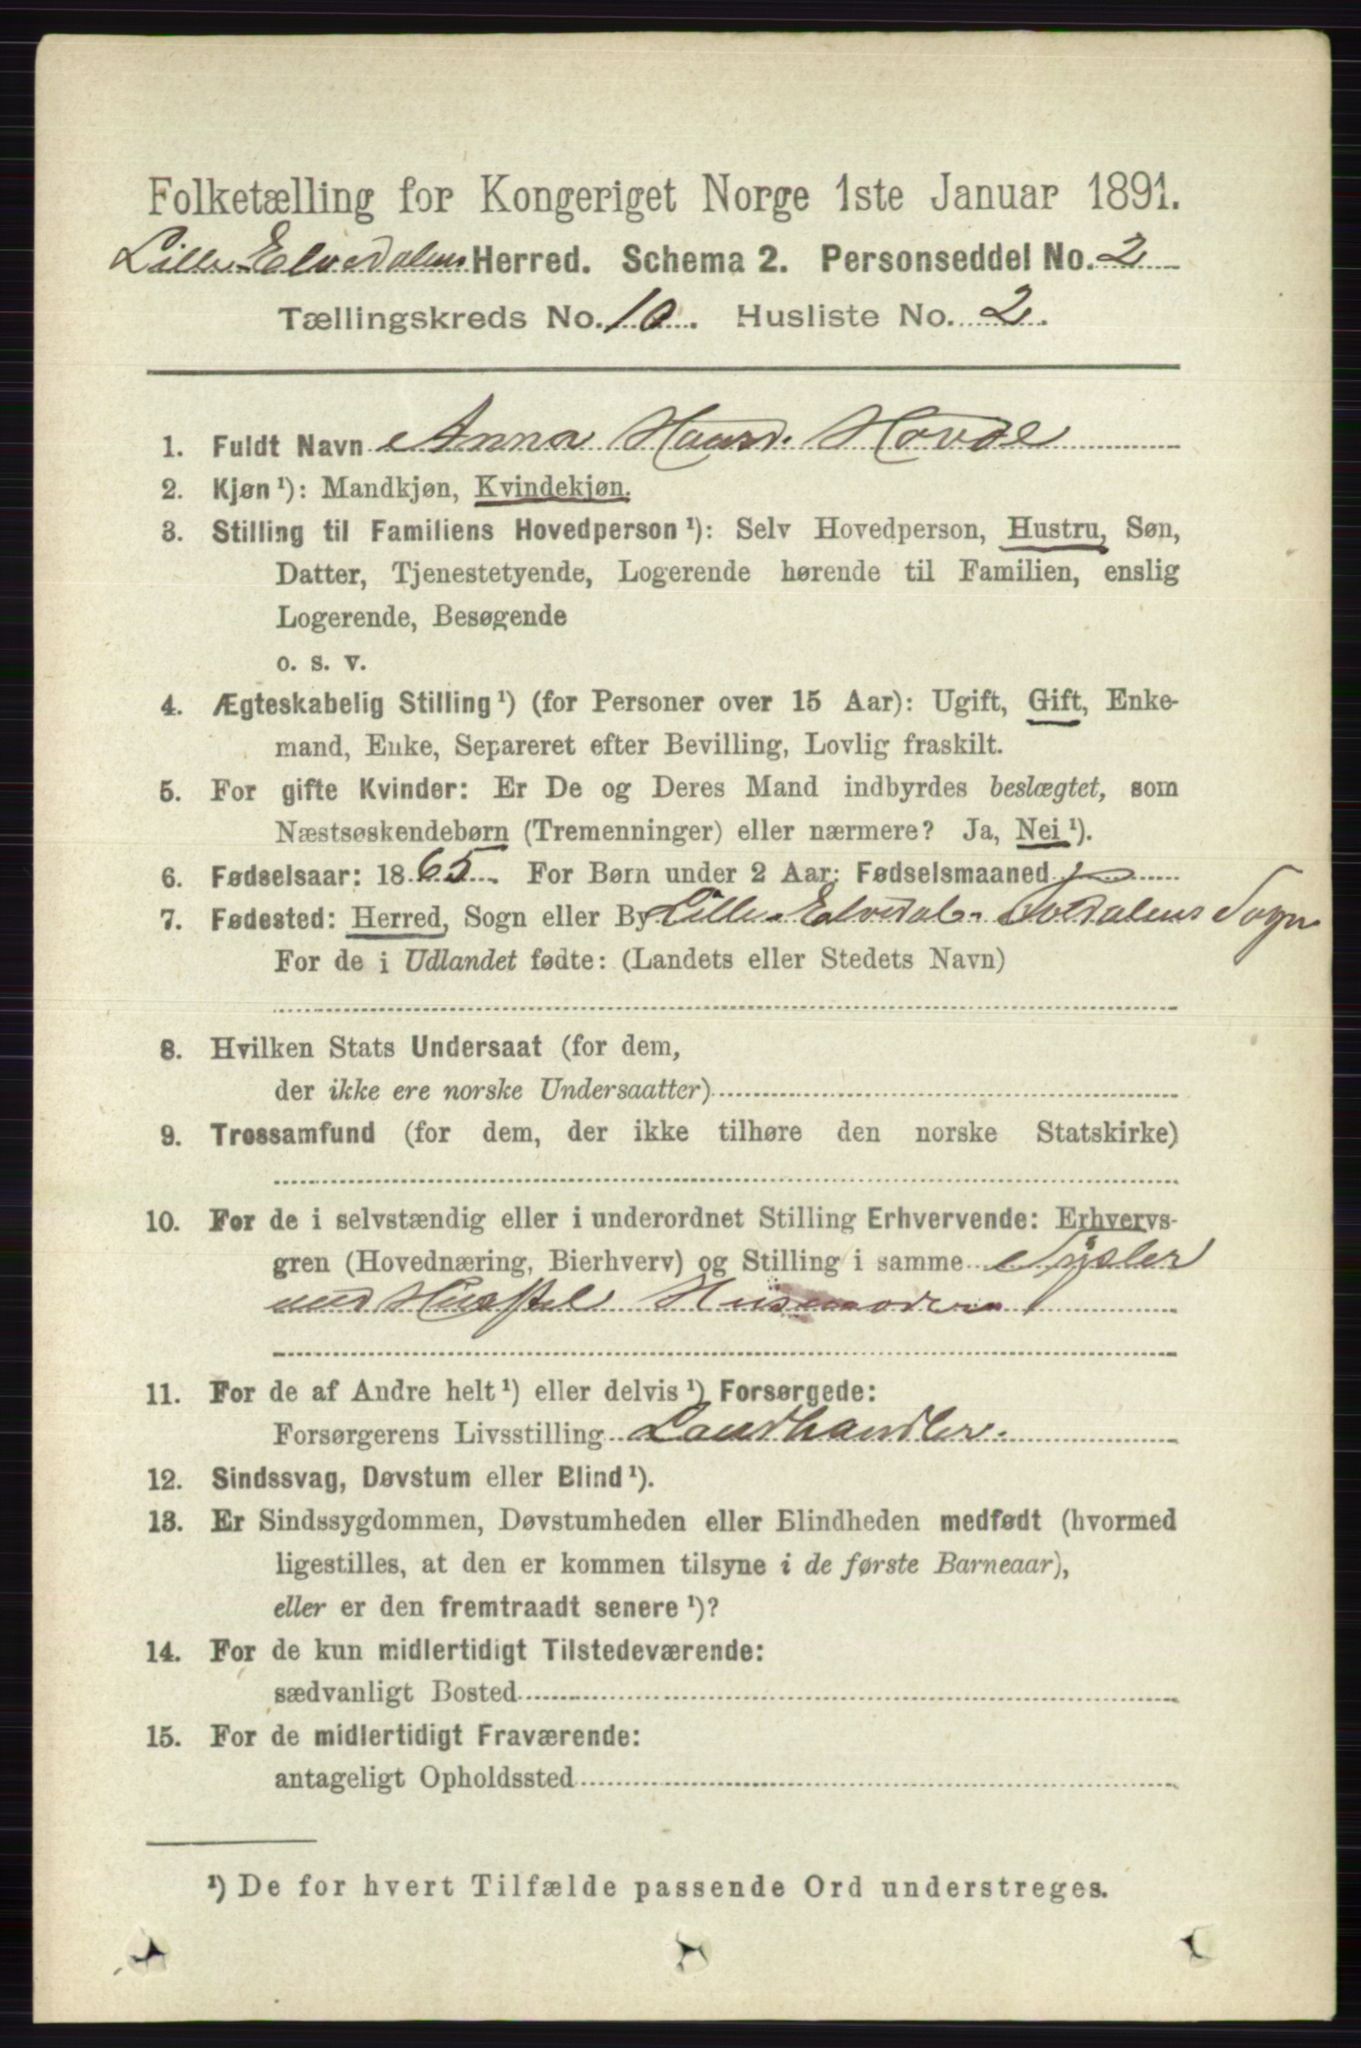 Folketælling for Kongeriget Norge 1ste Januar 1891.
Lille-Elvedalens Herred. Schema 2. Personseddel No. 2
Tællingskreds No. 10. Husliste No. 2.
1. Fuldt Navn Anna Hansd. Hovde
2. Kjøn ¹): Mandkjøn, Kvindekjøn.
3. Stilling til Familiens Hovedperson ¹): Selv Hovedperson, Hustru, Søn,
Datter, Tjenestetyende, Logerende hørende til Familien, enslig
Logerende, Besøgende
o. s. v.
4. Ægteskabelig Stilling ¹) (for Personer over 15 Aar): Ugift, Gift, Enke-
mand, Enke, Separeret efter Bevilling, Lovlig fraskilt.
5. For gifte Kvinder: Er De og Deres Mand indbyrdes beslægtet, som
Næstsøskendebørn (Tremenninger) eller nærmere? Ja, Nei ¹).
6. Fødselsaar: 1865. For Børn under 2 Aar: Fødselsmaaned
7. Fødested: Herred, Sogn eller By Lille-Elvedal- Soldalens Sogn
For de i Udlandet fødte: (Landets eller Stedets Navn)
8. Hvilken Stats Undersaat (for dem,
der ikke ere norske Undersaatter)
9. Trossamfund (for dem, der ikke tilhøre den norske Statskirke)
10. For de i selvstændig eller i underordnet Stilling Erhvervende: Erhvervs-
gren (Hovednæring, Bierhverv) og Stilling i samme Sysler
med Husstel
11. For de af Andre helt ¹) eller delvis ¹) Forsørgede:
Forsørgerens Livsstilling Landhandler.
12. Sindssvag, Døvstum eller Blind ¹).
13. Er Sindssygdommen, Døvstumheden eller Blindheden medfødt (hvormed
ligestilles, at den er kommen tilsyne i de første Barneaar),
eller er den fremtraadt senere ¹)?
14. For de kun midlertidigt Tilstedeværende:
sædvanligt Bosted
15. For de midlertidigt Fraværende:
antageligt Opholdssted
¹) De for hvert Tilfælde passende Ord understreges.